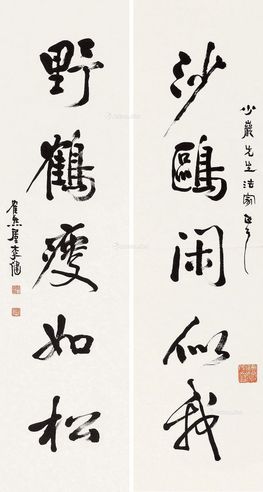 少巖先生法家正之
沙鷗闲似我
野鶴瘦如松
李健